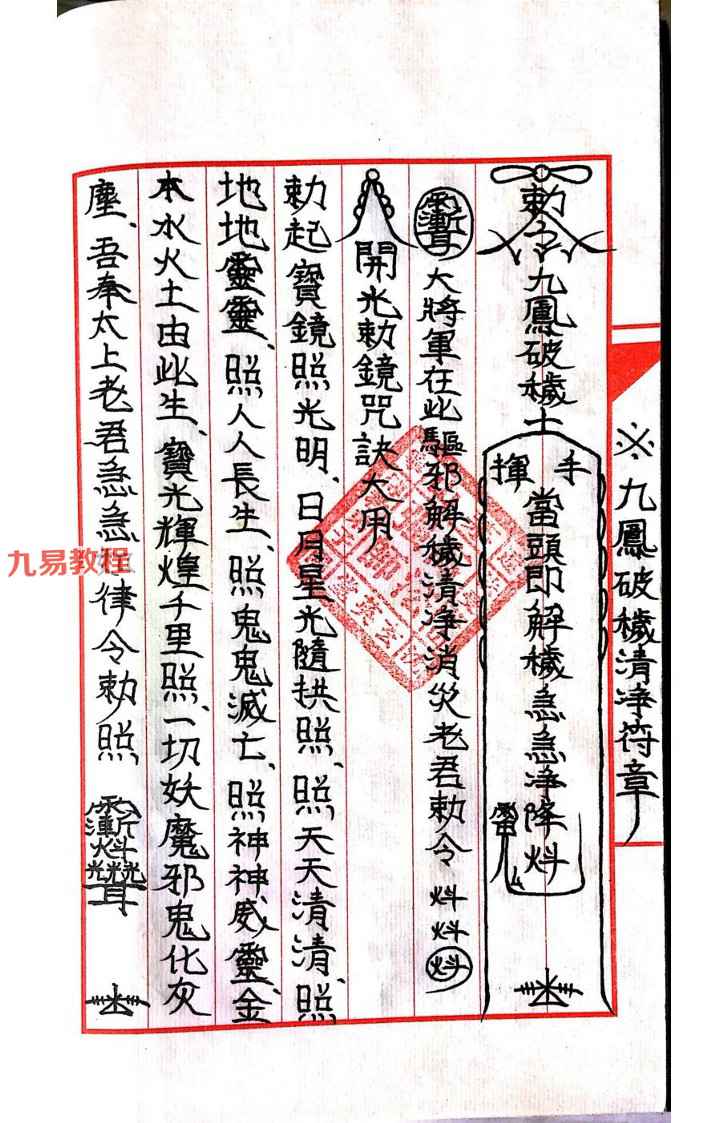 ※九鳳破穢清净符章
勅令九鳳破穢士
手揮當頭即解穢急急净降炓
大將軍在此驅邪解穢清净消災老君勅令炓炓炓
開光勅鏡咒訣大用
勅起寶鏡照光明、日月星光隨拱照、照天天清清、照
地地靈靈、照人人長生、照鬼鬼滅亡、照神神威靈、金
木水火土由此生、寶光輝煌千里照、一切妖魔邪鬼化灰
塵、吾奉太上老君急急律令勅照、
九易教程